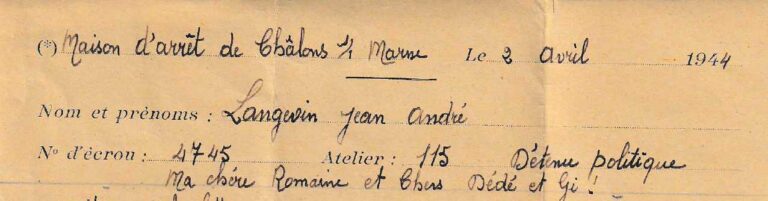 (*) Maison d'arrêt de Châlons s/ Marne Le 2 Avril 1944
Nom et prénoms : Langevin Jean André
N° d'écrou : 4745 Atelier : 115 Détenu politique
Ma chère Romaine et Chers Dédé et Gi !